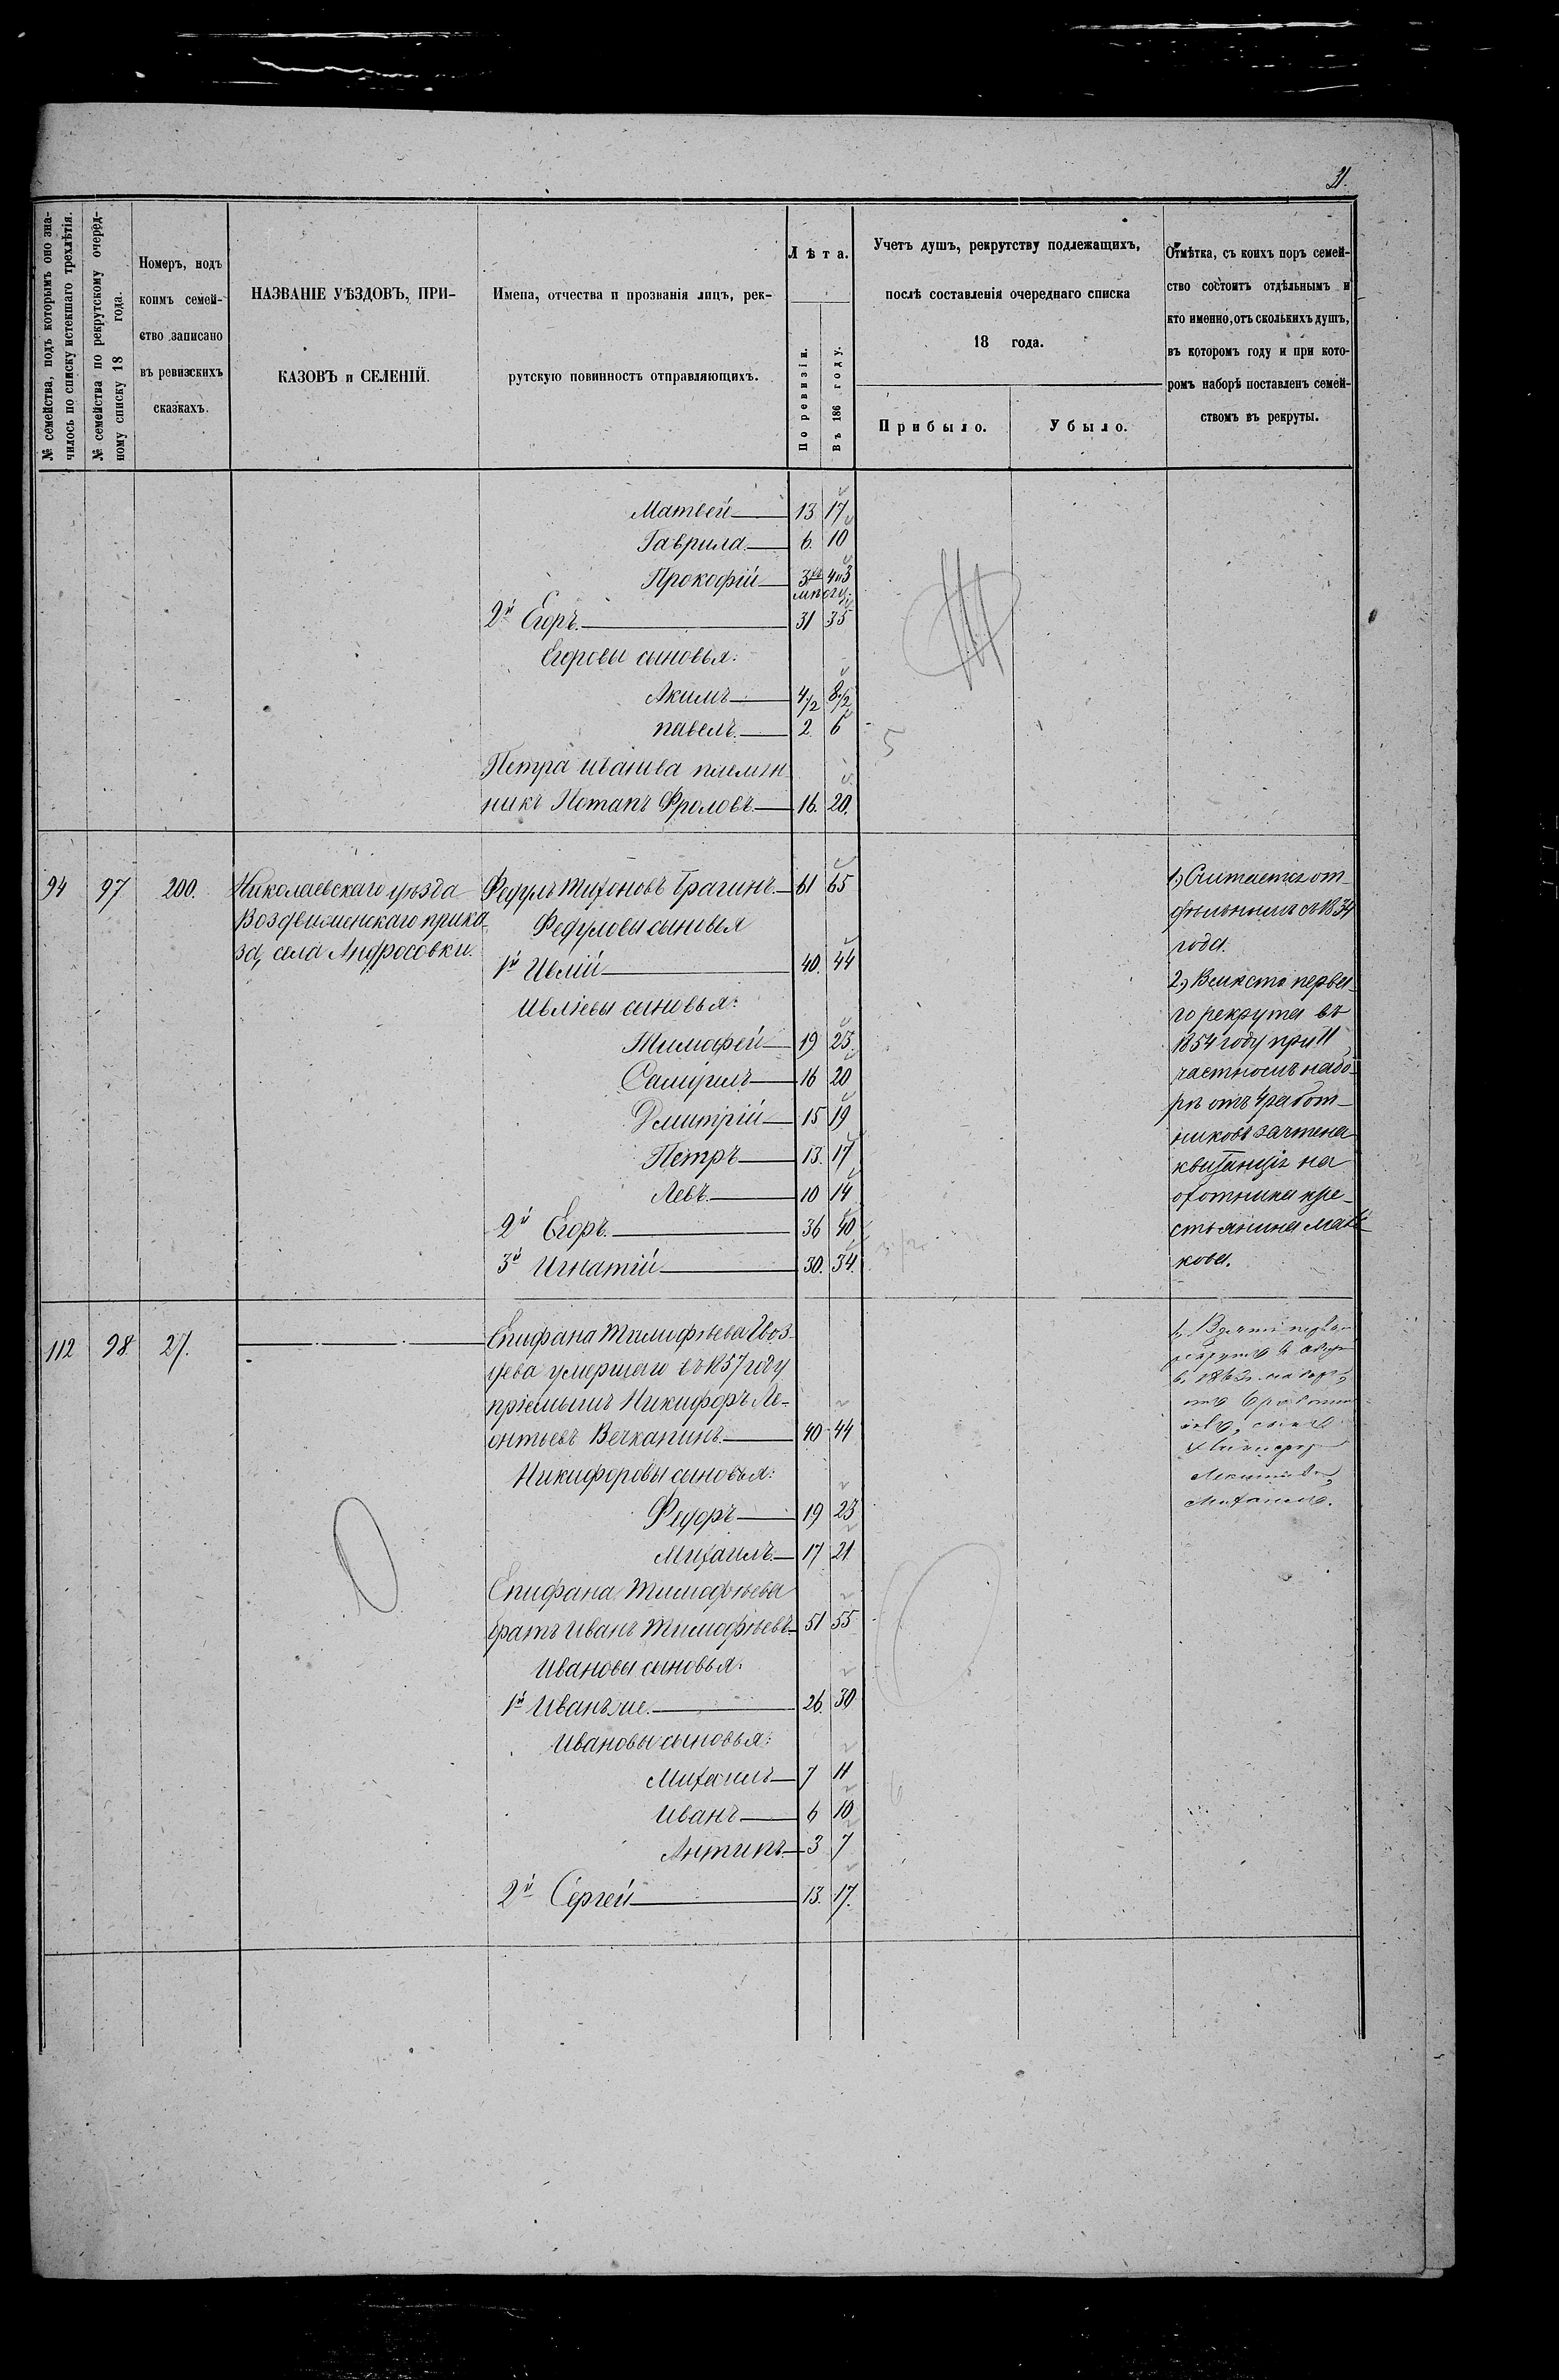 21.
№ семейства, подъ которымъ оно зна-
чилось по списку истекшаго трехлѣтія.
№ семейства по рекрутскому очеред-
ному списку 18 года.
Номеръ, подъ
коимъ семей-
ство записано
въ ревизскихъ
сказкахъ.
НАЗВАНІЕ УѢЗДОВЪ, ПРИ-
КАЗОВЪ и СЕЛЕНІЙ.
Имена, отчества и прозванія лицъ, рек-
рутскую повинность отправляющихъ.
Лѣта.
По ревизіи.
Въ 186 году.
Учетъ душъ, рекрутству подлежащихъ,
послѣ составленія очереднаго списка
18 года.
Прибыло.
Убыло.
Отмѣтка, съ коихъ поръ семей-
ство состоитъ отдѣльнымъ и
кто именно, отъ сколькихъ душъ,
въ которомъ году и при кото-
ромъ наборѣ поставленъ семей-
ствомъ въ рекруты.
Матвей 13 17
Гаврила 6. 10
Прокофій
2й Егоръ. 31 35
Егоровы сыновья:
Акимъ 4 1/2 8 1/2
павелъ. 2. 6
5
Петра иванова племян
никъ Потапъ Фроловъ 16. 20.
94 97 200.
Николаевскаго уѣзда
Воздвиженскаго прика-
за, села Андросовки.
Федулъ Тихоновъ Брагинъ. 61 65
Федуловы сыновья
1й Ивлій 40. 44
Ивліевы сыновья:
Тимофей 19 23.
Самуилъ 16 20
Дмитрій 15 19
Петръ 13. 17
Левъ. 10 14
2й Егоръ. 36 40
3й Игнатій 30. 34.
1) Считается от-
дѣльнымъ съ 1834
года.
2) Вмѣсто перва-
го рекрута въ
1854 году при 11
частномъ набо-
рѣ отъ 4 работ-
никовъ зачтена
квитанція на
охотника кре-
стьянина Мат-
кова.
112 98 27.
Епифана Тимофѣева Гвоз-
дева умершаго въ 1857 году
пріемышъ Никифоръ Ле-
онтьевъ Вечканинъ. 40 44
Никифоровы сыновья:
Федоръ 19 23
Михаилъ. 17 21
Епифана Тимофѣева
братъ Иванъ Тимофѣевъ 51 55
Ивановы сыновья:
1й Иванъ же. 26. 30
Ивановы сыновья:
Михаилъ 7 11
Иванъ 6 10
Антипъ. 3 7
2й Сергей 13. 17.
6
Михаилъ.